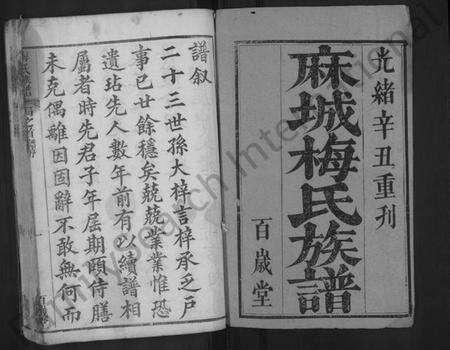 光緒辛丑重刊
麻城梅氏族譜
百歲堂
譜叙
二十三世孫大梓言梓承乏戶
事已世餘穩矣兢兢業業惟恐
遺玷先人數年前有以續譜相
屬者時先君子年屆期頤侍膳
未克偶離因固辭不敢無何而